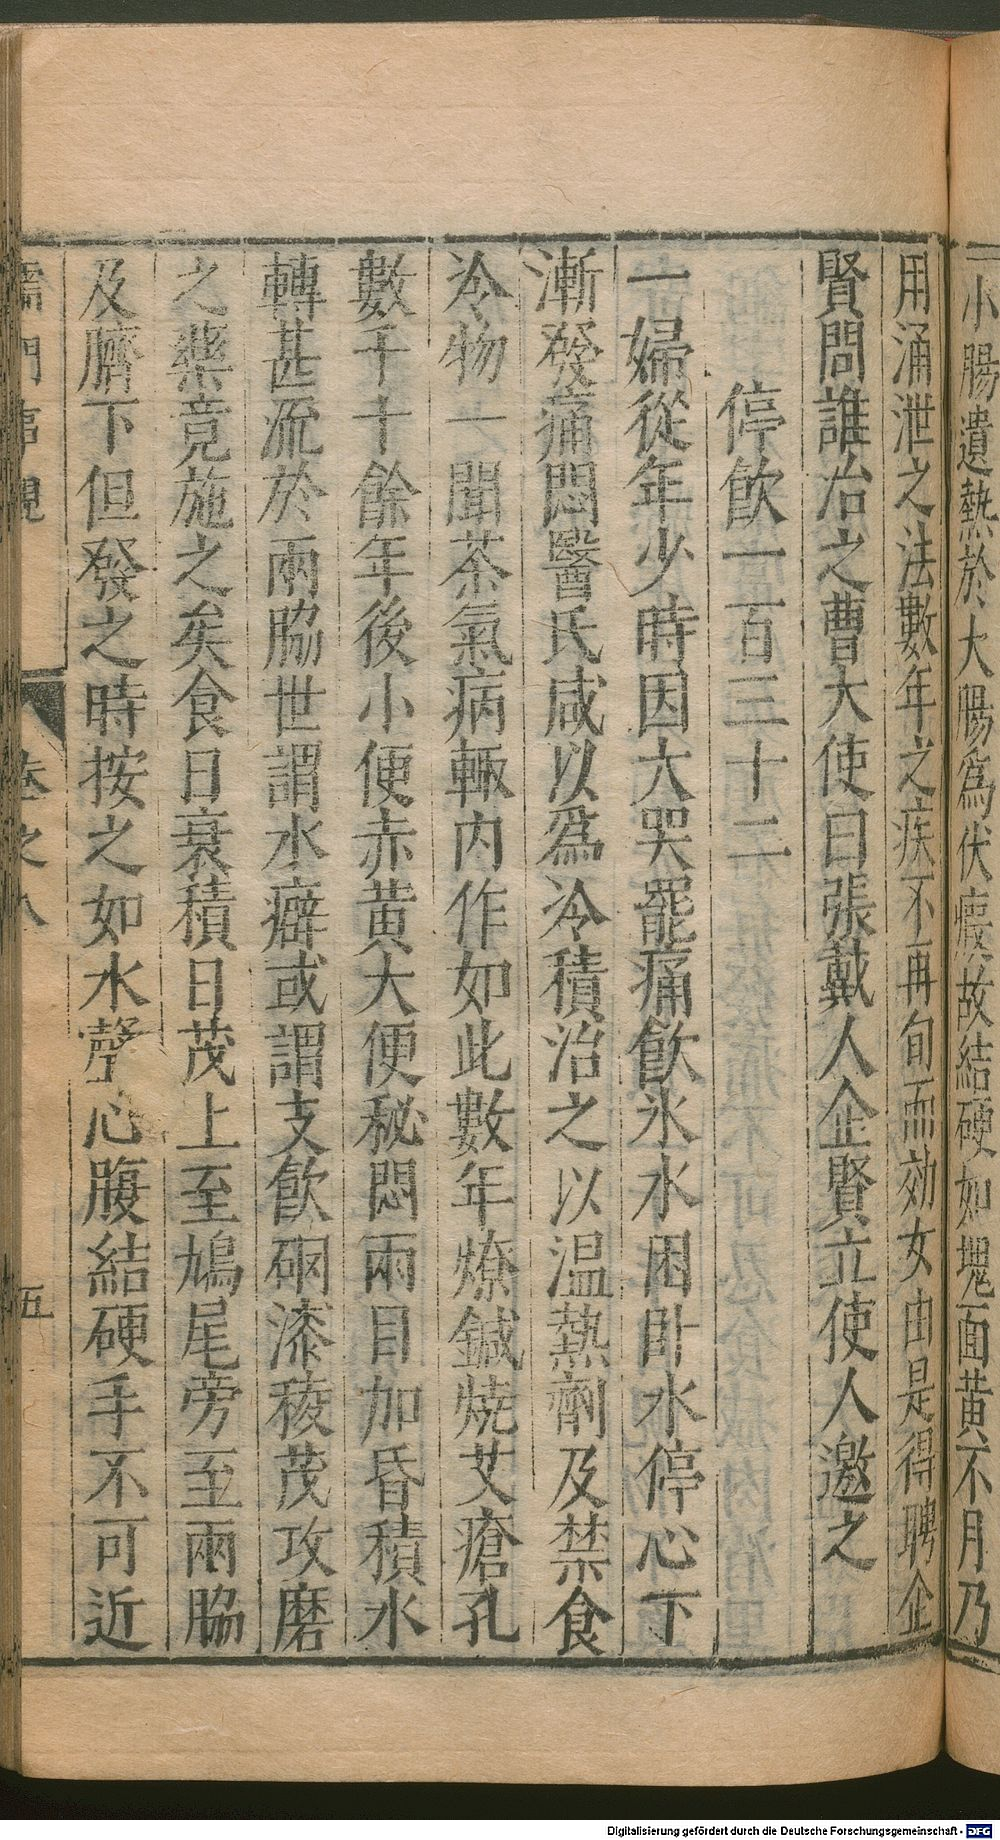 小腸遺熱於大腸為伏瘕故結硬如塊面黃不月乃
用涌泄之法數年之疾不再旬而効女由是得聘企
賢問誰治之曹大使曰張戴人企賢立使人邀之
停飲一百三十二
一婦從年少時因大哭罷痛飲氷水困臥水停心下
漸發痛悶醫氏咸以為冷積治之以温熱劑及禁食
冷物一聞茶氣病輙內作如此數年燎鍼燒艾瘡孔
數千十餘年後小便赤黃大便秘悶兩目加昏積水
轉甚流於兩脇世謂水癖或謂支飲硇漆稜茂攻磨
之藥竟施之矣食日衰積日茂上至鳩尾旁至兩脇
及臍下但發之時按之如水聲心腹結硬手不可近
儒門事親 卷之八 五
Digitalisierung gefördert durch die Deutsche Forschungsgemeinschaft - DFG